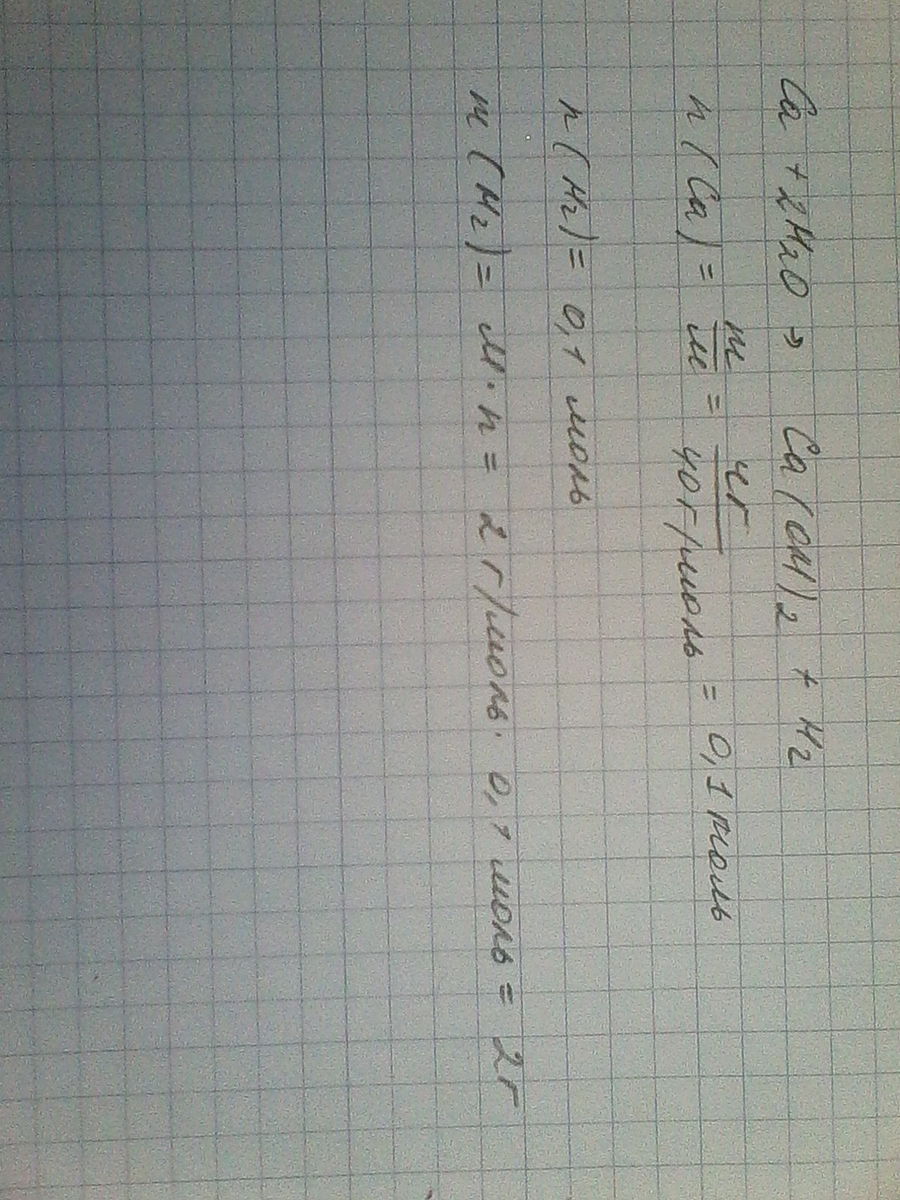 Ca + 2H2O → Ca(OH)2 + H2
n(Ca) = m/M = 4г/40г/моль = 0,1 моль
n(H2) = 0,1 моль
m(H2) = M·n = 2 г/моль · 0,1 моль = 2г